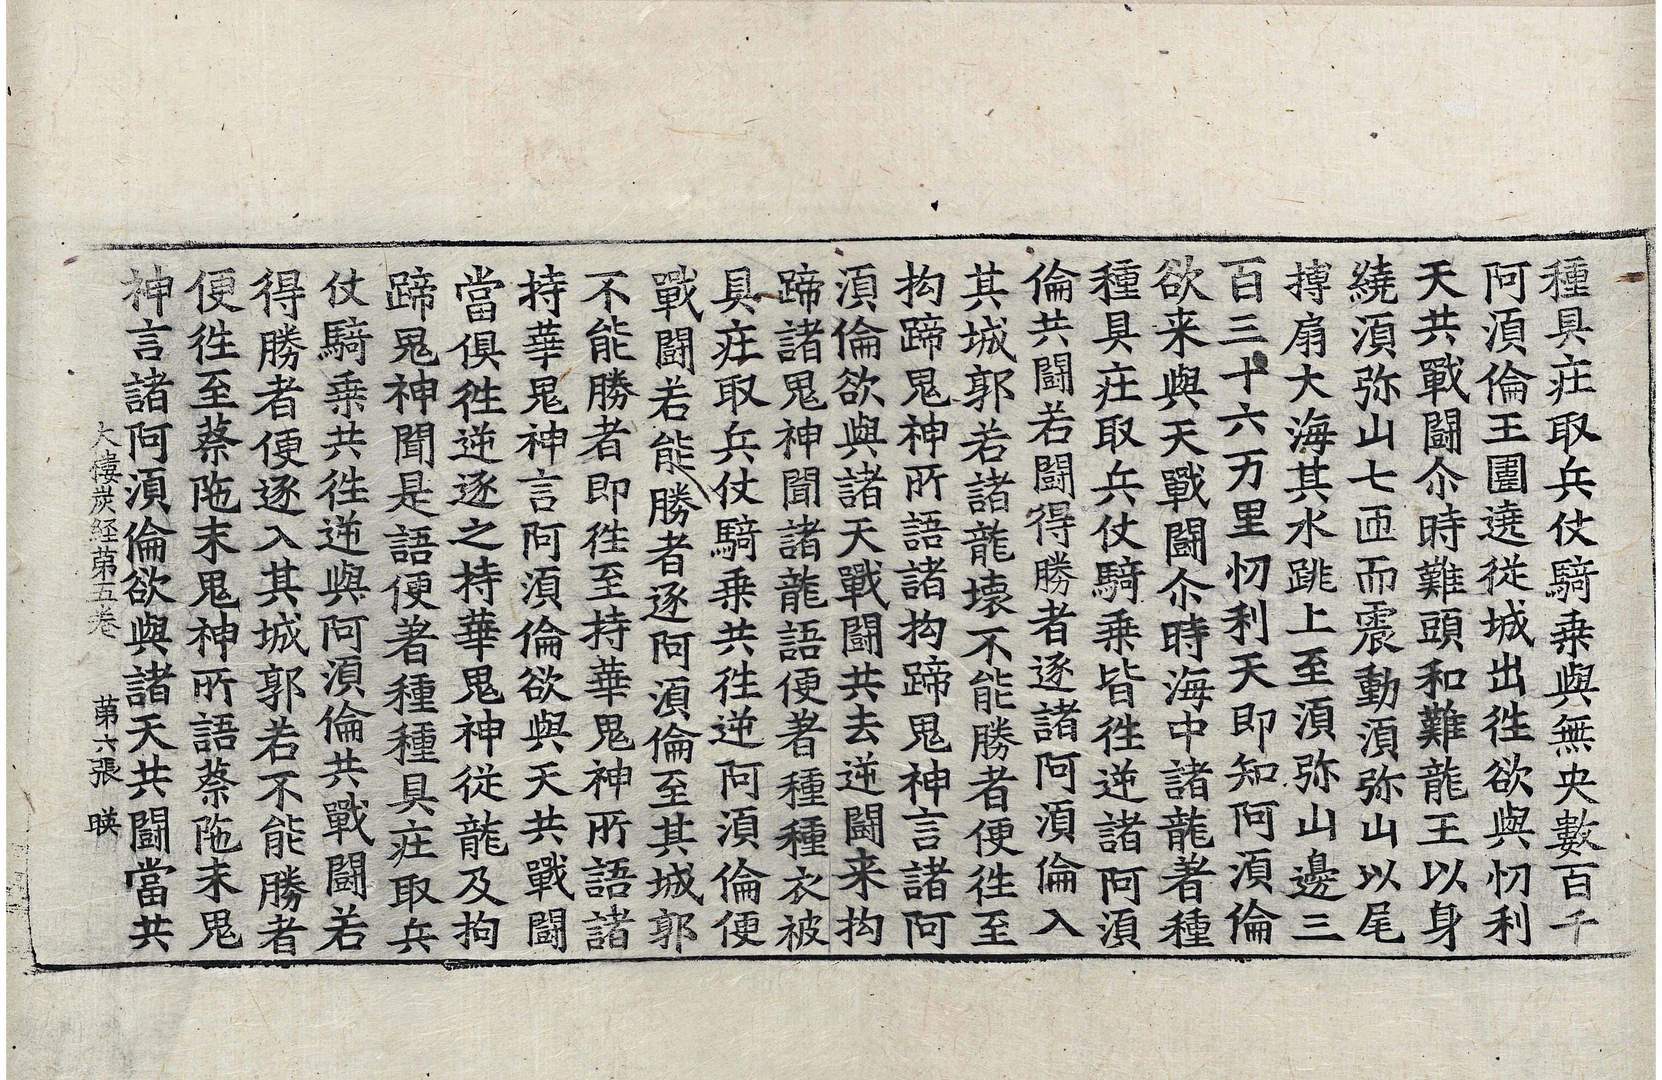 種具庄取兵仗騎乗與無央數百千
阿湏倫王圍遶従城出徃欲與忉利
天共戰鬪尒時難頭和難龍王以身
繞湏弥山七匝而震動湏弥山以尾
搏扇大海其水跳上至湏弥山邊三
百三十六万里忉利天即知阿湏倫
欲来與天戰鬪尒時海中諸龍著種
種具庄取兵仗騎乗皆徃逆諸阿湏
倫共鬪若鬪得勝者逐諸阿湏倫入
其城郭若諸龍壊不能勝者便徃至
拘蹄鬼神所語諸拘蹄鬼神言諸阿
湏倫欲與諸天戰鬪共去逆鬪来拘
蹄諸鬼神聞諸龍語便著種種衣被
具庄取兵仗騎乗共徃逆阿湏倫便
戰鬪若能勝者逐阿湏倫至其城郭
不能勝者即徃至持華鬼神所語諸
持華鬼神言阿湏倫欲與天共戰鬪
當俱徃逆逐之持華鬼神従龍及拘
蹄鬼神聞是語便著種種具庄取兵
仗騎乗共徃逆與阿湏倫共戰鬪若
得勝者便逐入其城郭若不能勝者
便徃至蔡陁末鬼神所語蔡陁末鬼
神言諸阿湏倫欲與諸天共鬪當共
大樓炭経苐五卷 苐六張 暎